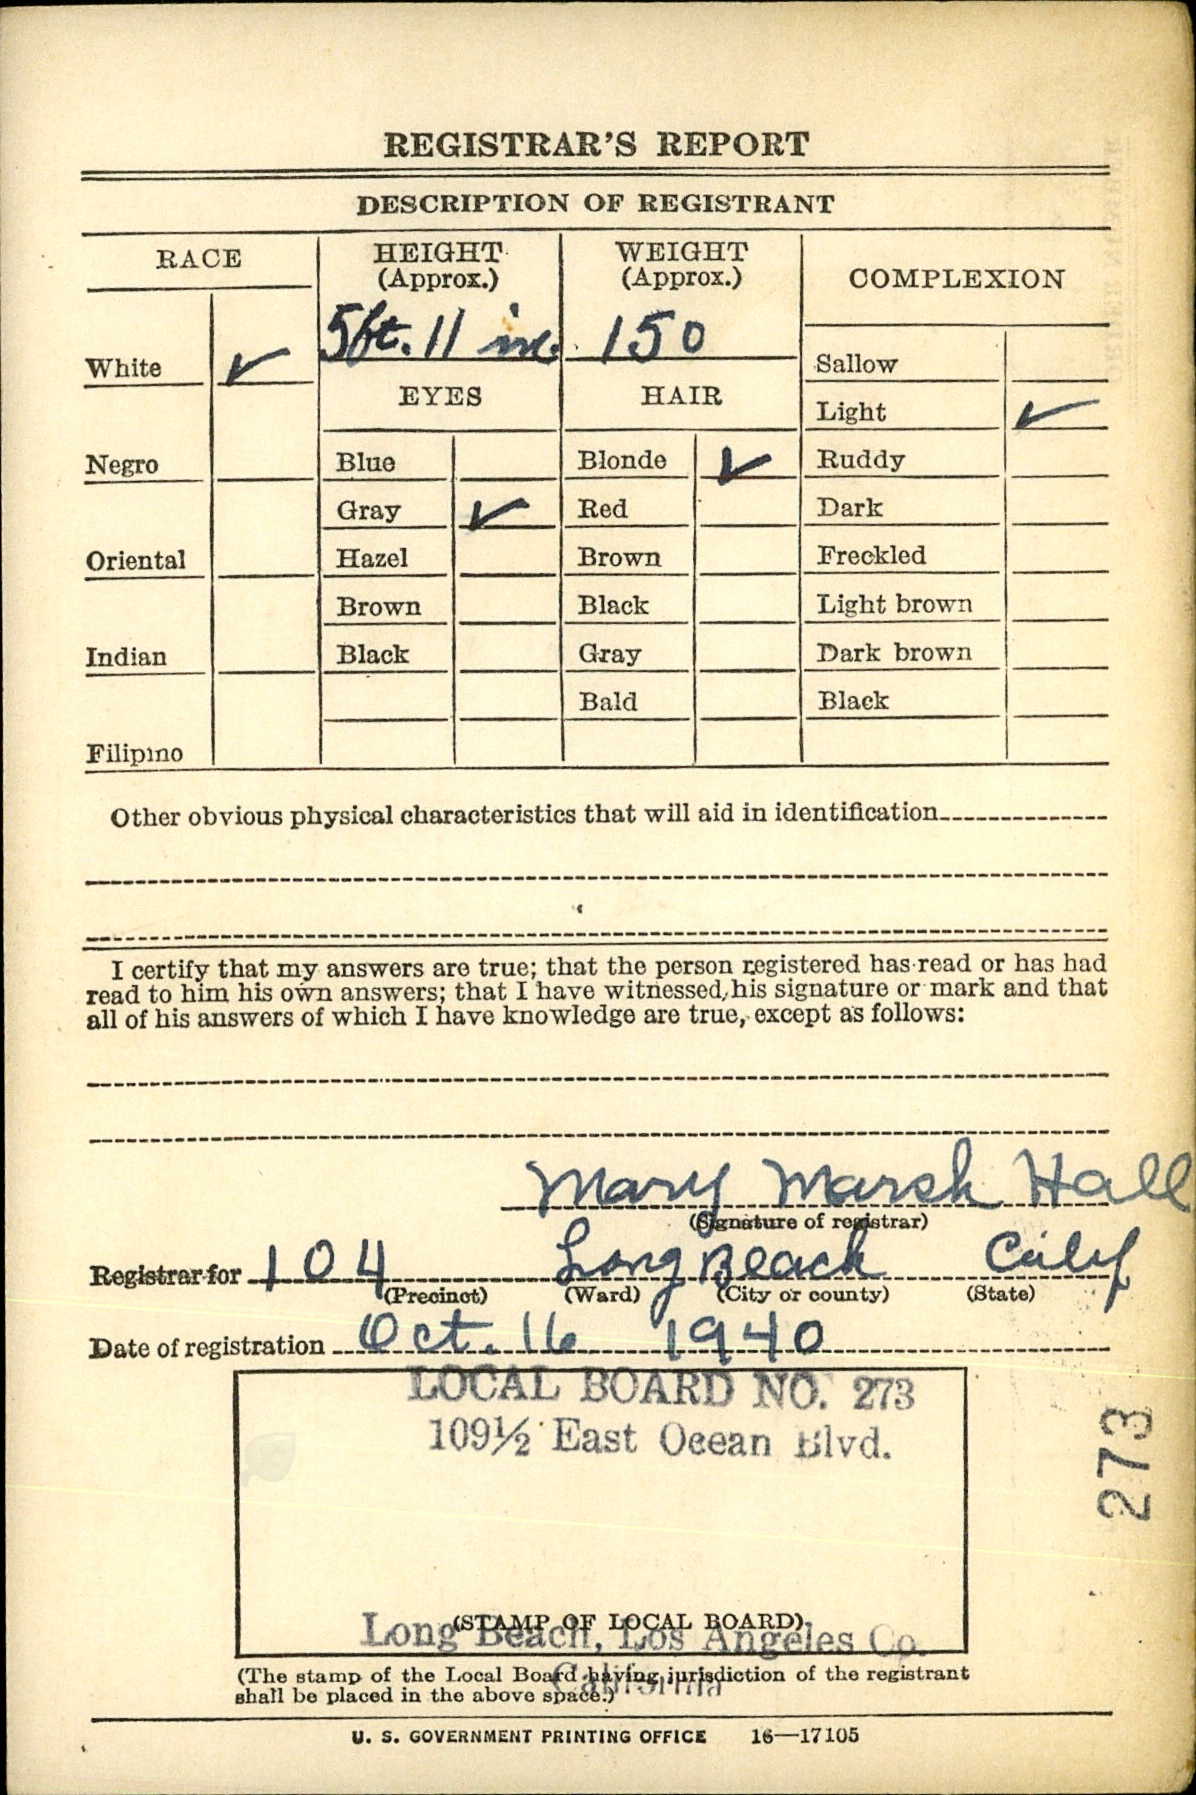 REGISTRAR'S REPORT
DESCRIPTION OF REGISTRANT
RACE
HEIGHT
(Approx.)
WEIGHT
(Approx.)
COMPLEXION
5 ft. 11 in. 150
White ✓
EYES
HAIR
Sallow
Light ✓
Negro
Blue
Blonde ✓
Ruddy
Gray ✓
Red
Dark
Oriental
Hazel
Brown
Freckled
Brown
Black
Light brown
Indian
Black
Gray
Dark brown
Bald
Black
Filipino
Other obvious physical characteristics that will aid in identification
I certify that my answers are true; that the person registered has read or has had
read to him his own answers; that I have witnessed his signature or mark and that
all of his answers of which I have knowledge are true, except as follows:
Mary Marsh Hall
(Signature of registrar)
Registrar for 104 Long Beach Calif
(Precinct) (Ward) (City or county) (State)
Date of registration Oct. 16 1940
LOCAL BOARD NO. 273
109½ East Ocean Blvd.
273
(STAMP OF LOCAL BOARD)
Long Beach, Los Angeles Co.
California
(The stamp of the Local Board having jurisdiction of the registrant
shall be placed in the above space.)
U. S. GOVERNMENT PRINTING OFFICE 16—17105